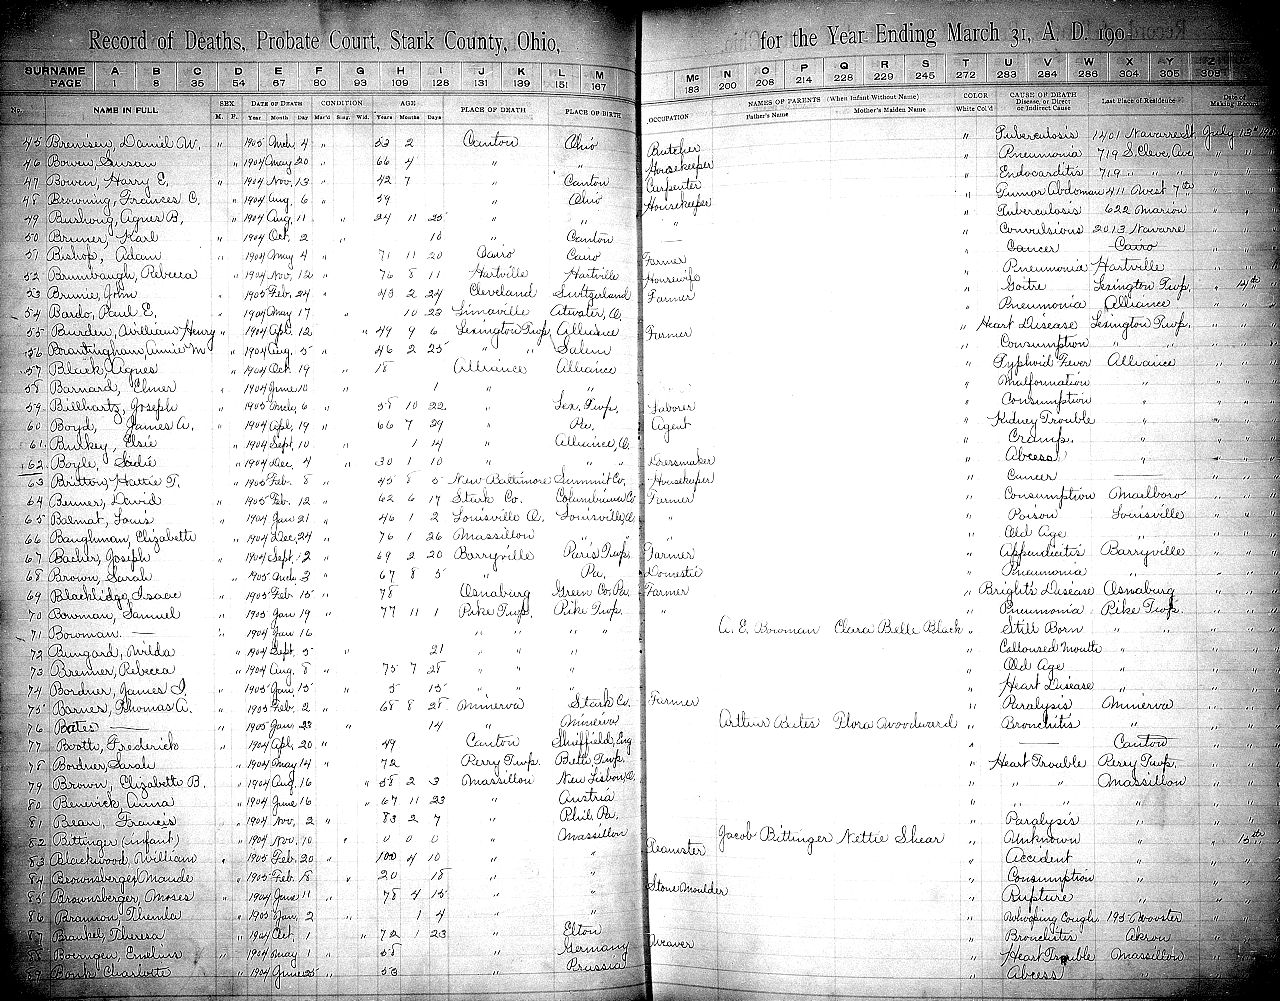 Record of Deaths, Probate Court, Stark County, Ohio, for the Year Ending March 31, A. D. 190
SURNAME A B C D E F G H I J K L M Mc N O P Q R S T U V W X Y Z
PAGE 8 35 54 67 80 93 109 128 131 139 151 167 183 200 208 214 228 229 245 272 283 284 286 304 305 308
No. NAME IN FULL SEX DATE OF DEATH CONDITION AGE PLACE OF DEATH PLACE OF BIRTH OCCUPATION NAMES OF PARENTS (When Infant Without Name) COLOR CAUSE OF DEATH Last Place of Residence Date of Making Record
M. F. Year Month Day Mar'd Sing. Wid. Years Months Days Father's Name Mother's Maiden Name White Col'd Disease, or Direct or Indirect Cause
45 Daniel W. " 1905 Mch. 4 " 53 2 Canton Ohio Butcher " Tuberculosis 1401 Navarre St July 13th
46 Bowen, Susan " 1904 May 20 " 66 4 " " Housekeeper " Pneumonia 719 S. Cleve. Ave
47 Bowen, Harry E. " 1904 Nov. 13 " 42 7 " Canton Carpenter " Endocarditis 719 " "
48 Browning, Frances C. " 1904 Aug. 6 " 59 " Ohio Housekeeper " Tumor Abdoman 411 West 7th
49 Bushong, Agnes B. " 1904 Aug. 11 " 24 11 25 " " " " Tuberculosis 622 Marion
50 Bruner, Karl " 1904 Oct. 2 " 16 " Canton — " Convulsions 2013 Navarre
51 Bishop, Adam " 1904 May 4 " 71 11 20 Cairo Cairo Farmer " Cancer Cairo
52 Brumbaugh, Rebecca " 1904 Nov. 12 " 76 8 11 Hartville Hartville Housewife " Pneumonia Hartville
53 John " 1905 Feb. 24 " 43 2 24 Cleveland Switzerland Farmer " Goitre Lexington Twp. " 14th
54 Bardo, Paul E. " 1904 May 17 " 10 23 Limaville Atwater, O. " Pneumonia Alliance
55 Burden, William Henry " 1904 Apl. 12 " 49 9 6 Lexington Twp. Alliance Farmer " Heart Disease Lexington Twp.
56 Brantingham, Annie M " 1904 Aug. 5 " 46 2 25 " " Salem " Consumption " "
57 Black, Agnes " 1904 Oct. 19 " 18 Alliance Alliance " Typhoid Fever Alliance
58 Barnard, Elmer " 1904 June 10 " 1 " " " Malformation "
59 Billhartz, Joseph " 1905 Mch. 6 " 58 10 22 " Lex. Twp. Laborer " Consumption "
60 Boyd, James A. " 1904 Apl. 19 " 66 7 29 " Pa. Agent " Kidney Trouble "
61 Bulkey, Elsie " 1904 Sept. 10 " 1 14 " Alliance, O. " Cramp. "
62 Boyle, Sadie " 1904 Dec. 4 " 30 1 10 " " " Dressmaker " Abcess "
63 Britton, Hattie T. " 1905 Feb. 8 " 45 8 5 New Baltimore Summit Co. Housekeeper " Cancer —
64 David " 1905 Feb. 12 " 62 6 17 Stark Co. Columbiana Co Farmer " Consumption Marlboro
65 Balmat, Louis " 1904 Jan 21 " 46 1 2 Louisville O. Louisville, O. " " Poison Louisville
66 Baughman, Elizabeth " 1904 Dec. 24 " 76 1 26 Massillon " " " Old Age "
67 Joseph " 1904 Sept. 2 " 69 2 20 Barryville Paris Twp. Farmer " Appendicitis Barryville
68 Brown, Sarah " 1905 Mch. 3 " 67 8 5 " Pa. Domestic " Pneumonia "
69 Blackledge, Isaac " 1905 Feb. 15 " 78 Osnaburg Green Co. Pa. Farmer " Bright's Disease Osnaburg
70 Bowman, Samuel " 1905 Jan 19 " 77 11 1 Pike Twp. Pike Twp. " " Pneumonia Pike Twp.
71 Bowman — " 1904 Jan 16 " " " " A. E. Bowman Clara Belle Black " Still Born " "
72 Bungard, Wilda " 1904 Sept. 5 " 21 " " " " Calloused Mouth "
73 Brenner, Rebecca " 1904 Aug. 8 " 75 7 28 " " " " Old Age "
74 Bordner, James I. " 1905 Jan 15 " 5 15 " " " " Heart Disease "
75 Barnes, Thomas A. " 1905 Feb. 2 " 68 8 28 Minerva Stark Co. Farmer " Paralysis Minerva
76 Bates — " 1905 Jan 23 " 14 " Minerva Arthur Bates Flora Woodward " Bronchitis "
77 Booth, Frederick " 1904 Apl. 20 " 49 Canton Sheffield, Eng " — Canton
78 Bordner, Sarah " 1904 May 14 " 72 Perry Twp. Beth. Twp. " Heart Trouble Perry Twp.
79 Brown, Elizabeth B. " 1904 Aug. 16 " 58 2 3 Massillon New Lisbon, O. " " " Massillon
80 Anna " 1904 June 16 " 67 11 23 " Austria " " " "
81 Bean, Francis " 1904 Nov. 2 " 83 2 7 " Phil. Pa. " Paralysis "
82 Bittinger (infant) " 1904 Nov. 10 " 0 0 0 " Massillon Jacob Bittinger Nettie Shear " Unknown " 15th
83 Blackwood, William " 1905 Feb. 20 " 100 4 10 " " Teamster " Accident "
84 Brownsberger, Maude " 1905 Feb 18 " 20 18 " " " Consumption "
85 Brownsberger, Moses " 1904 June 11 " 78 4 15 " " Stone Moulder " Rupture "
86 Brannon, Thelma " 1905 Jan. 2 " 1 4 " " " Whooping Cough 195 Wooster
87 Theresa " 1904 Oct. 1 " 72 1 23 " Elton " Bronchitis Akron
88 " 1904 May 1 " 58 " Germany Weaver " Heart Trouble Massillon
89 Charlotte " 1904 June 25 " 53 " Prussia " Abcess "